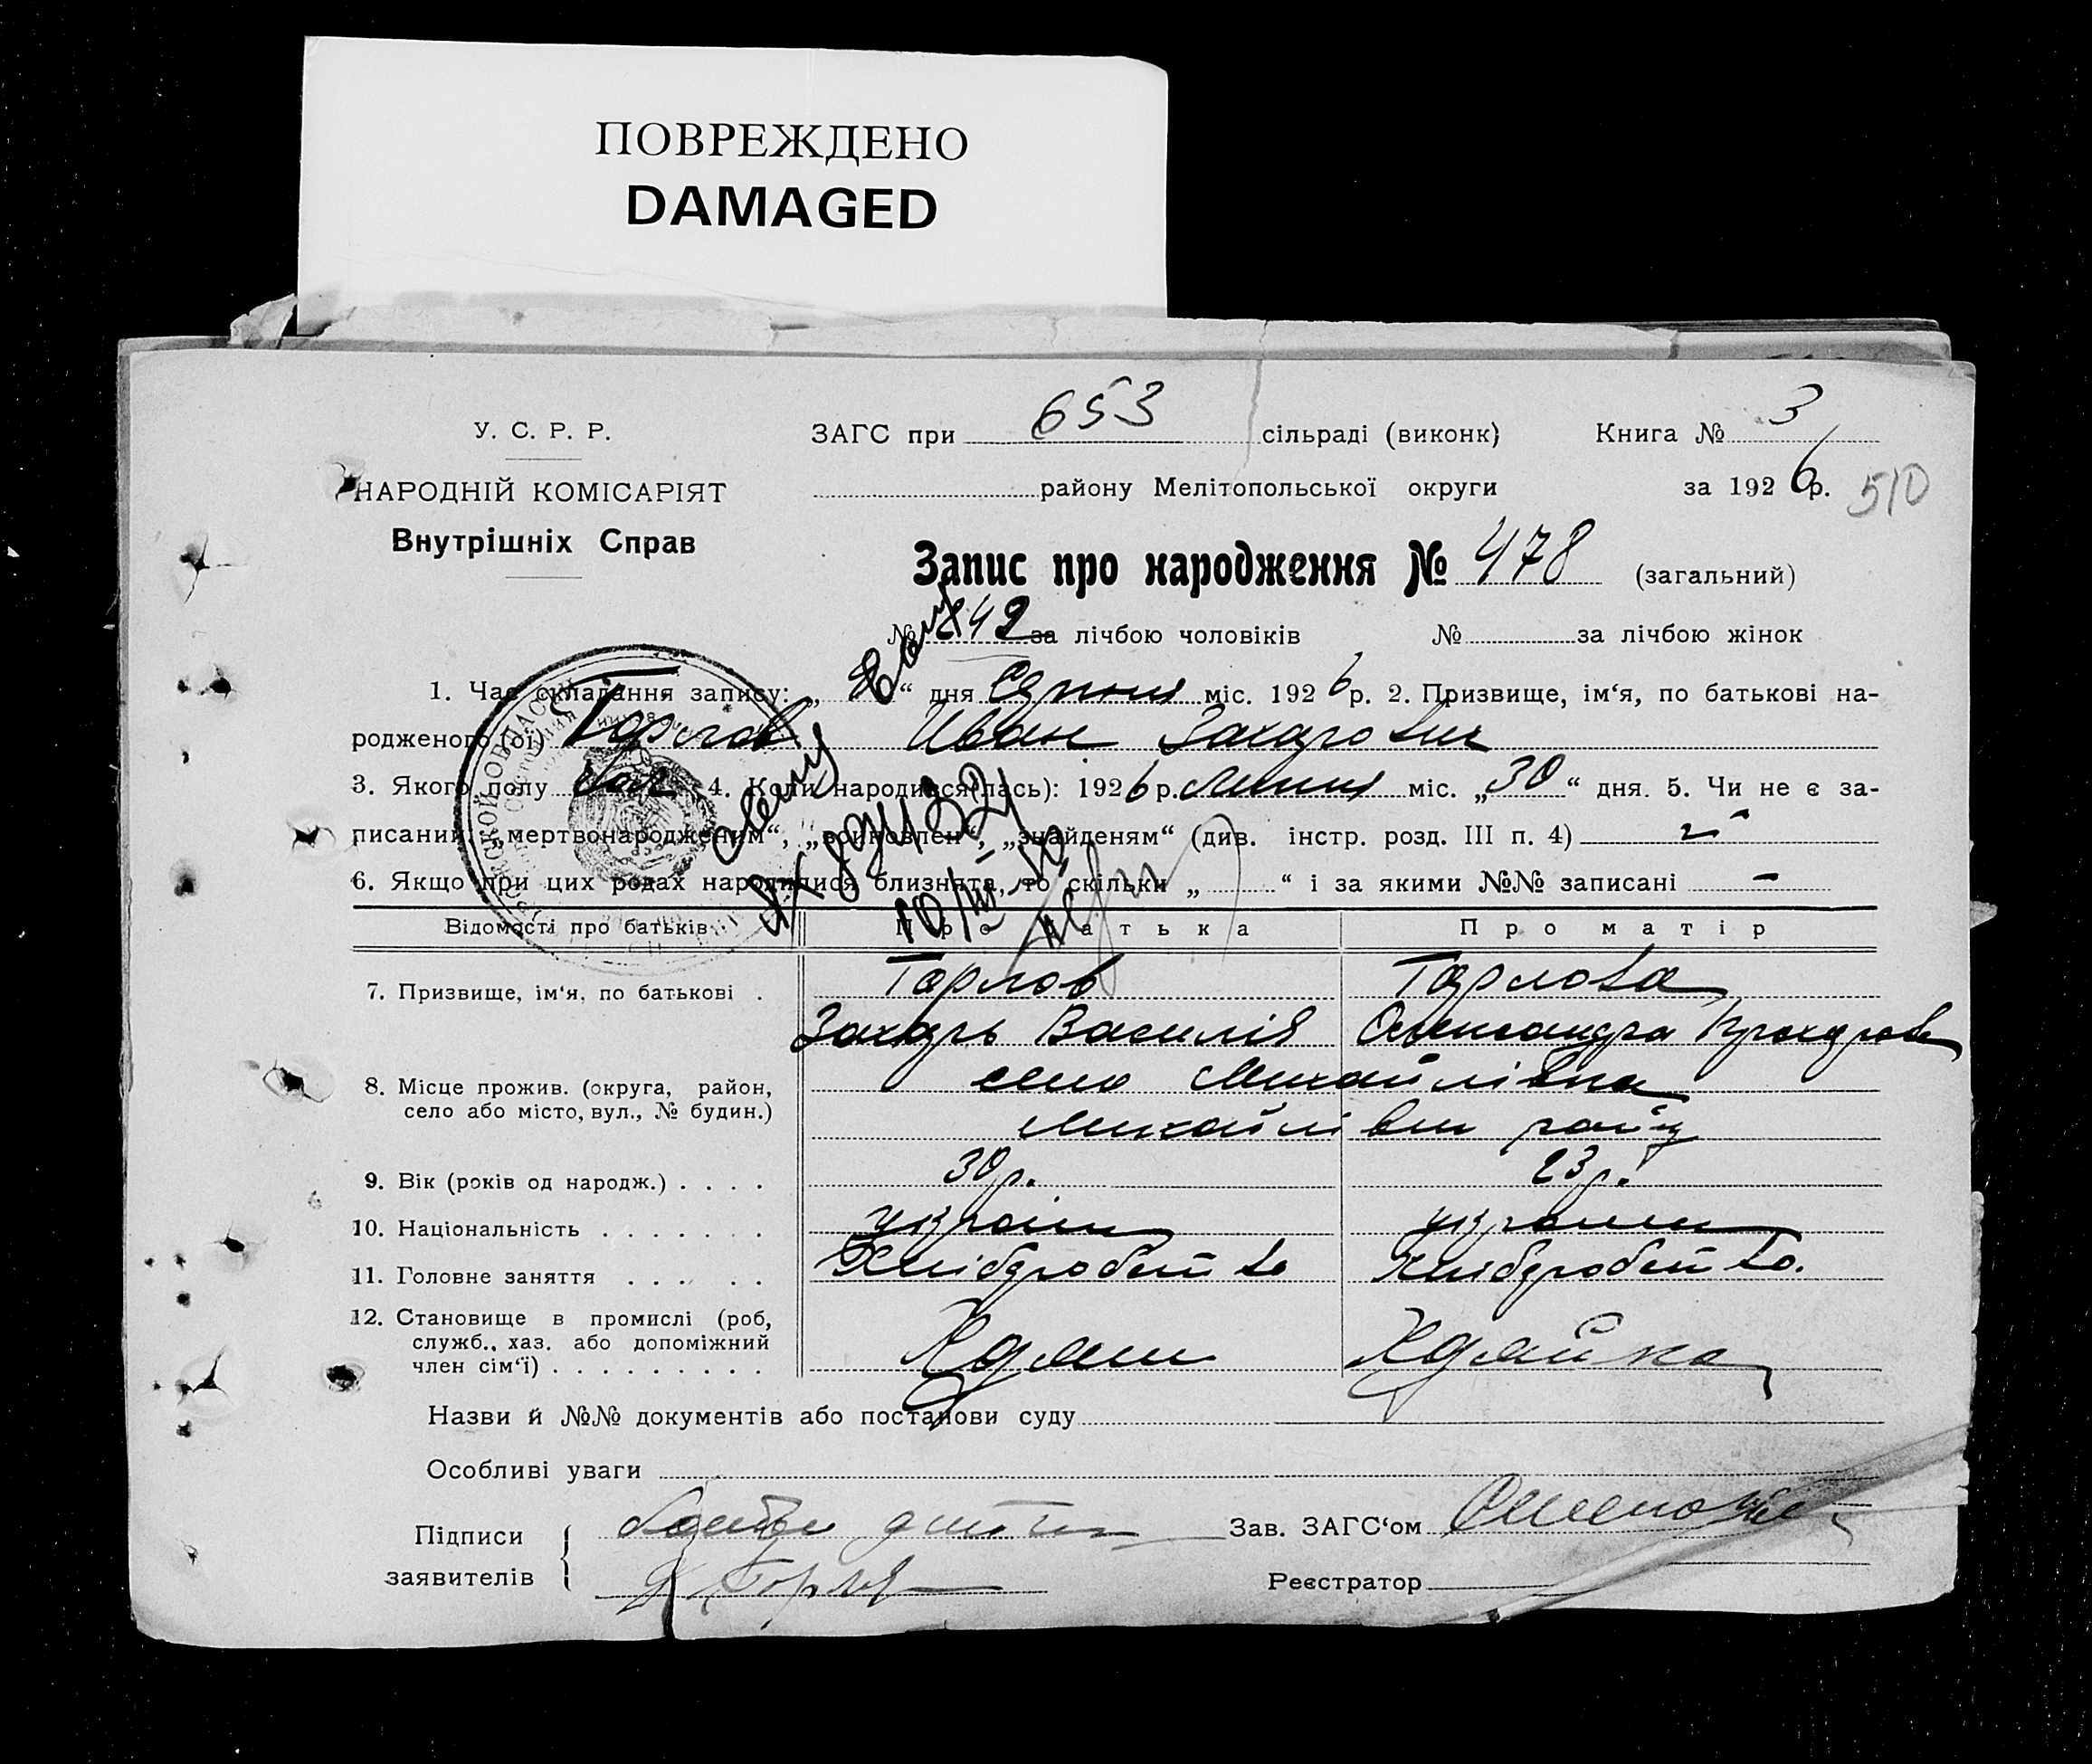 ПОВРЕЖДЕНО
DAMAGED
У. С. Р. Р.
НАРОДНІЙ КОМІСАРІЯТ
Внутрішніх Справ
ЗАГС при 653 сільраді (виконк) Книга № 3
району Мелітопольської округи за 1926 р. 510
Запис про народження № 478 (загальний)
№ 242 за лічбою чоловіків № за лічбою жінок
1. Час складання запису: „ “ дня Серпня міс. 1926 р. 2. Призвище, ім‘я, по батькові на-
родженого (ої) Горлов Иван Захарович
3. Якого полу чол 4. Коли народився(лась): 1926 р. Липня міс. „30“ дня. 5. Чи не є за-
писаний: „мертвонародженим“, „всиновлен“, „знайденям“ (див. інстр. розд. III п. 4)
6. Якщо при цих родах народилися близнята, то скільки „ “ і за якими №№ записані –
Відомості про батьків Про батька Про матір
7. Призвище, ім‘я, по батькові . Горлов Горлова
Захарь Василів Олександра
8. Місце прожив. (округа, район, село Михайлівка
село або місто, вул., № будин.) Михайлівськ райну
9. Вік (років од народж.) . . . . 30 р. 23 р.
10. Національність . . . . . . . україн україн
11. Головне заняття . . . . . . Хліборобств Хліборобство.
12. Становище в промислі (роб,
служб., хаз. або допоміжний
член сім‘ї) . . . . . . . . . Хазяин Хазяйка
Назви й №№ документів або постанови суду
Особливі уваги
Підписи Зав. ЗАГС‘ом
заявителів Горлов Реєстратор